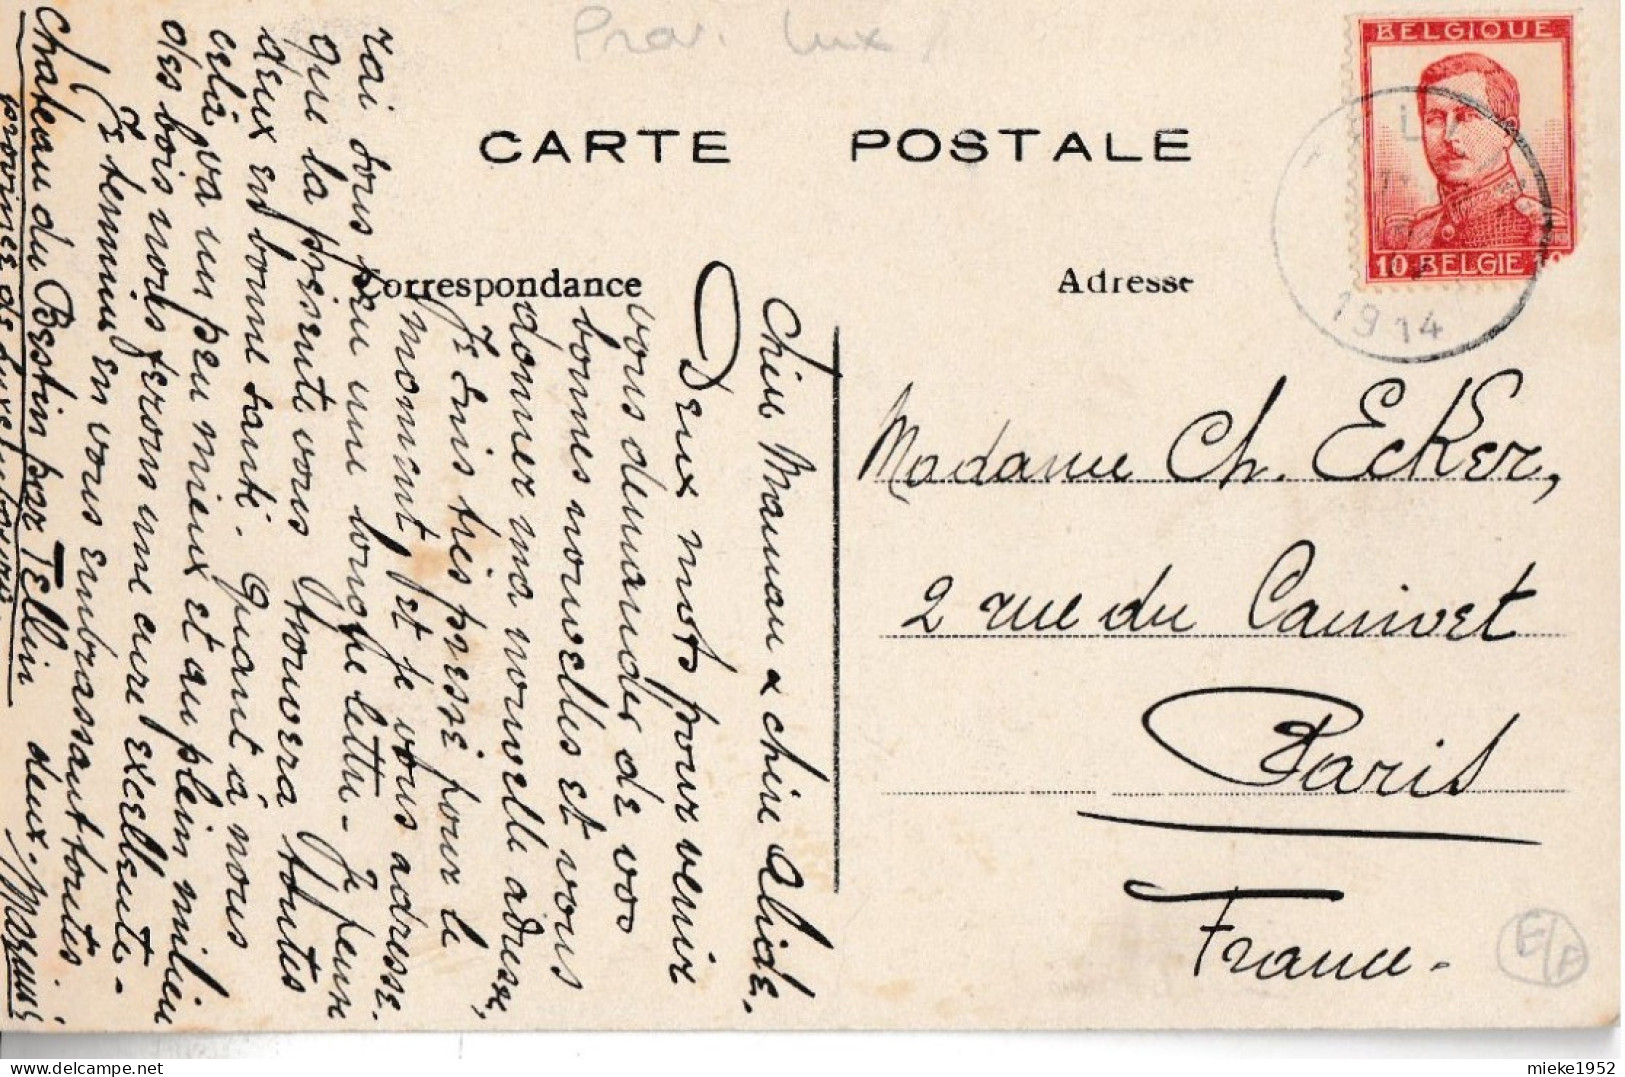 Prov. Lux
BELGIQUE
10 BELGIE 10
1914
CARTE POSTALE
Correspondance
Adresse
Madame Ch. Ecker,
2 rue du Canivet
Paris
France.
E/F
Chère Maman & chère Alide.
Deux mots pour venir
vous demander de vos
bonnes nouvelles et vous
donner ma nouvelle adresse,
Je suis très pressé pour le
moment, et je vous adresse-
rai sous peu une longue lettre - Je pense
que la présente vous trouvera toutes
deux en bonne santé. Quant à nous
celà va un peu mieux et au plein milieu
des bois nous ferons une cure excellente.
Je termine en vous embrassant toutes
deux.
Chateau du Bestin par Tellin
province de Luxembourg
mieke1952